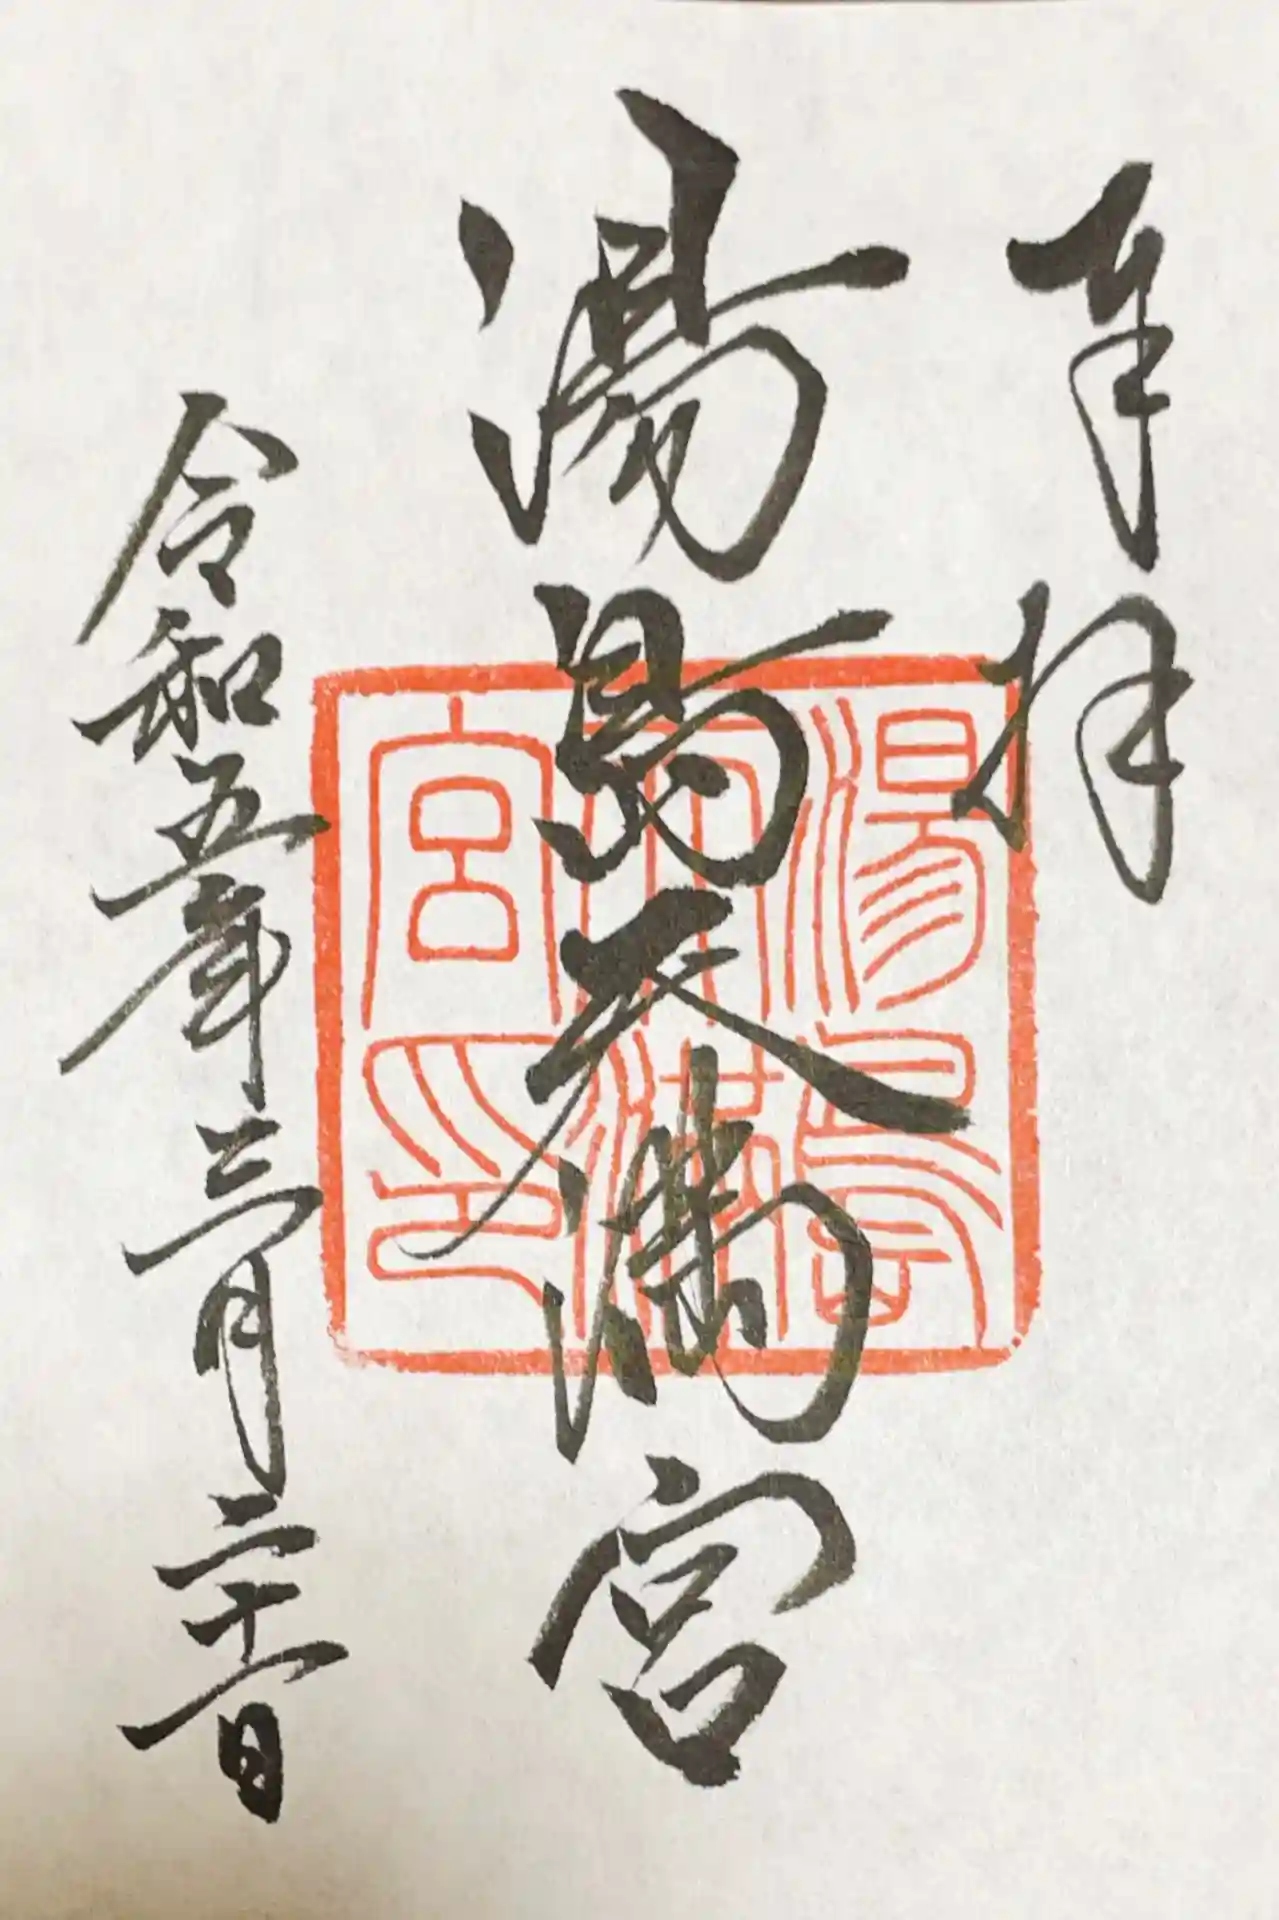 奉拝
湯島天満宮
令和五年三月二十一日
湯島
天満
宮印